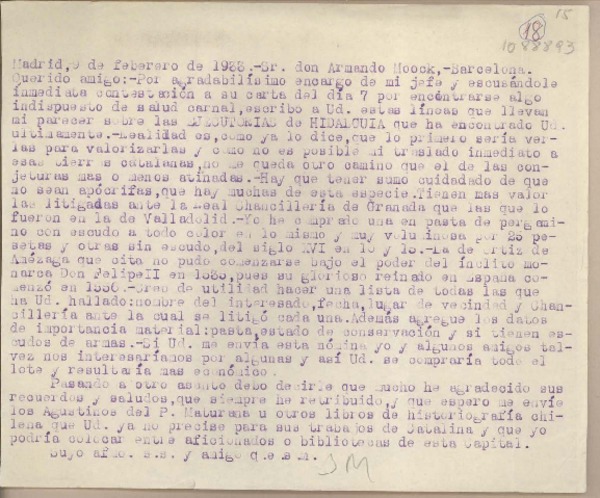 15
18
1088893
Madrid,9 de feberero de 1933.-Sr. don Armando Moock,-Barcelona.
Querido amigo:-Por agradabilísimo encargo de mi jefe y escusándole
inmediata contestación a su carta del día 7 por encontrarse algo
indispuesto de salud carnal,escribo a Ud. estas líneas que llevan
mi parecer sobre las EJECUTORIAS de HIDALGUIA que ha encontrado Ud.
últimamente.-Realidad es,como ya lo dice,que lo primero sería ver-
las para valorizarlas y como no es posible mi traslado inmediato a
esas tierras catalanas,no me queda otro camino que el de las con-
jeturas mas o menos atinadas.-Hay que tener sumo cuidadado de que
no sean apócrifas,que hay muchas de esta especie.Tienen mas valor
las litigadas ante la Real Chancillería de Granada que las que lo
fueron en la de Valladolid.-Yo he comprado una en pasta de pergami-
no con escudo a todo color en lo mismo y muy voluminosa por 25 pe-
setas y otras sin escudo,del siglo XVI en 10 y 15.-La de Ortiz de
Amézaga que cita no pudo comenzarse bajo el poder del ínclito mo-
narca Don Felipe II en 1535,pues su glorioso reinado en España co-
menzó en 1556.-Creo de utilidad hacer una lista de todas las que
ha Ud. hallado:nombre del interesado,fecha,lugar de vecindad y Chan-
cillería ante la cual se litigó cada una.Además agregue los datos
de importancia material:pasta,estado de conservación y si tienen es-
cudos de armas.-Si Ud. me envía esta nómina yo y algunos amigos tal-
vez nos interesaríamos por algunas y así Ud. se compraría todo el
lote y resultaría mas económico.
Pasando a otro asunto debo decirle que mucho he agradecido sus
recuerdos y saludos,que siempre he retribuido,y que espero me envíe
los Agustinos del P. Maturana u otros libros de historiografía chi-
lena que Ud. ya no precise para sus trabajos de Catalina y que yo
podría colocar entre aficionados o bibliotecas de esta Capital.
Suyo afmo. s.s. y amigo q.e.s.m.
JM